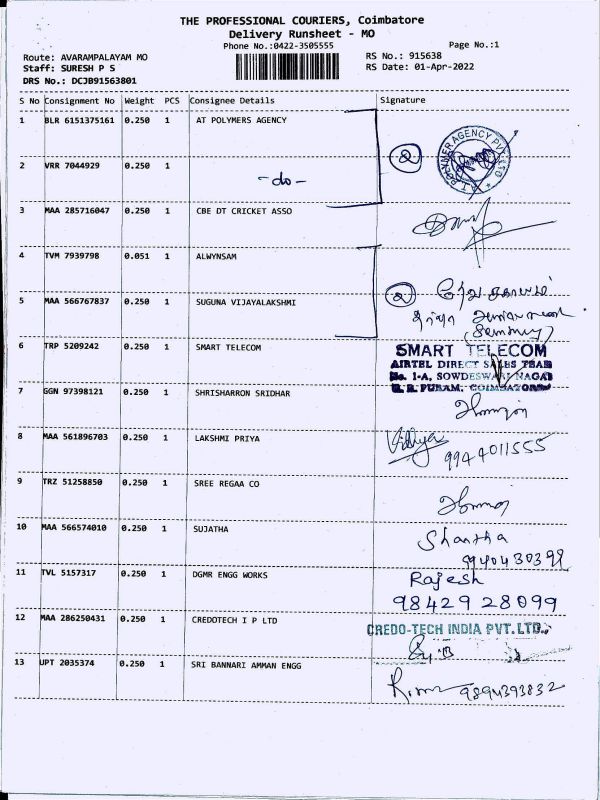 THE PROFESSIONAL COURIERS, Coimbatore
Delivery Runsheet - MO
Phone No.:0422-3505555
Page No.:1
Route: AVARAMPALAYAM MO
RS No.: 915638
Staff: SURESH P S
RS Date: 01-Apr-2022
DRS No.: DCJB91563801
S No Consignment No Weight PCS Consignee Details Signature
1 BLR 6151375161 0.250 1 AT POLYMERS AGENCY
2 VRR 7044929 0.250 1 -do-
②
POLYMER AGENCY PVT LTD
3 MAA 285716047 0.250 1 CBE DT CRICKET ASSO
4 TVM 7939798 0.051 1 ALWYNSAM
②
5 MAA 566767837 0.250 1 SUGUNA VIJAYALAKSHMI
6 TRP 5209242 0.250 1 SMART TELECOM
SMART TELECOM
AIRTEL DIRECT SALES TEAM
No. 1-A, SOWDESWARI NAGAR
PURAM, COIMBATORE
7 GGN 97398121 0.250 1 SHRISHARRON SRIDHAR
8 MAA 561896703 0.250 1 LAKSHMI PRIYA Vidhya
9944011555
9 TRZ 51258850 0.250 1 SREE REGAA CO
10 MAA 566574010 0.250 1 SUJATHA Shantha
9940430399
11 TVL 5157317 0.250 1 DGMR ENGG WORKS Rajesh
98429 28099
12 MAA 286250431 0.250 1 CREDOTECH I P LTD CREDO-TECH INDIA PVT.LTD.,
13 UPT 2035374 0.250 1 SRI BANNARI AMMAN ENGG 9894393832